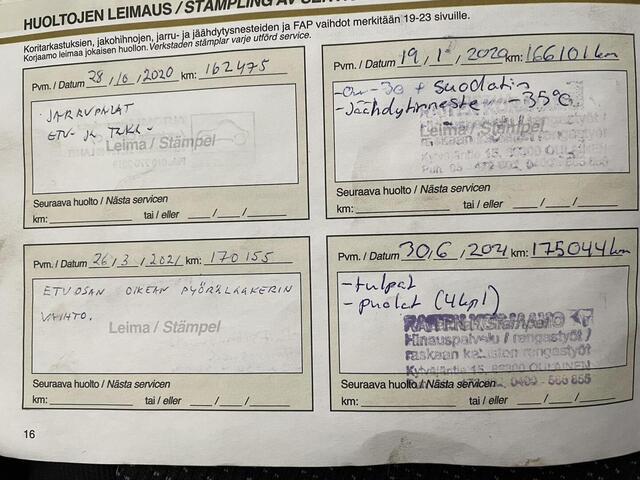 HUOLTOJEN LEIMAUS / STÄMPLING AV
Koritarkastuksien, jakohihnojen, jarru- ja jäähdytysnesteiden ja FAP vaihdot merkitään 19-23 sivuille.
Korjaamo leimaa jokaisen huollon. Verkstaden stämplar varje utförd service.
Pvm. / Datum 28, 10, 2020 km: 162475
JARRUPALAT
ETU- JA TAKA-
Leima / Stämpel
Seuraava huolto / Nästa servicen
km: tai / eller / /
Pvm. / Datum 19, 1, 2020 km: 166101 km
+ suodatin
- Jäähdytinneste -35°C
Leima / Stämpel
raskaan kaluston rengastyöt
Kyläjäntie 15, 86300 OULAINEN
Seuraava huolto / Nästa servicen
km: tai / eller / /
Pvm. / Datum 26, 3, 2021 km: 170155
ETUOSAN OIKEAN PYÖRÄLAAKERIN
VAIHTO.
Leima / Stämpel
Seuraava huolto / Nästa servicen
km: tai / eller / /
Pvm. / Datum 30, 6, 2021 km: 175044 km
- tulpat
- puolat (4kpl)
Leima / Stämpel
Hinauspalvelu / rengastyöt /
raskaan kaluston rengastyöt
15, 86300 OULAINEN
Seuraava huolto / Nästa servicen
km: tai / eller / /
16